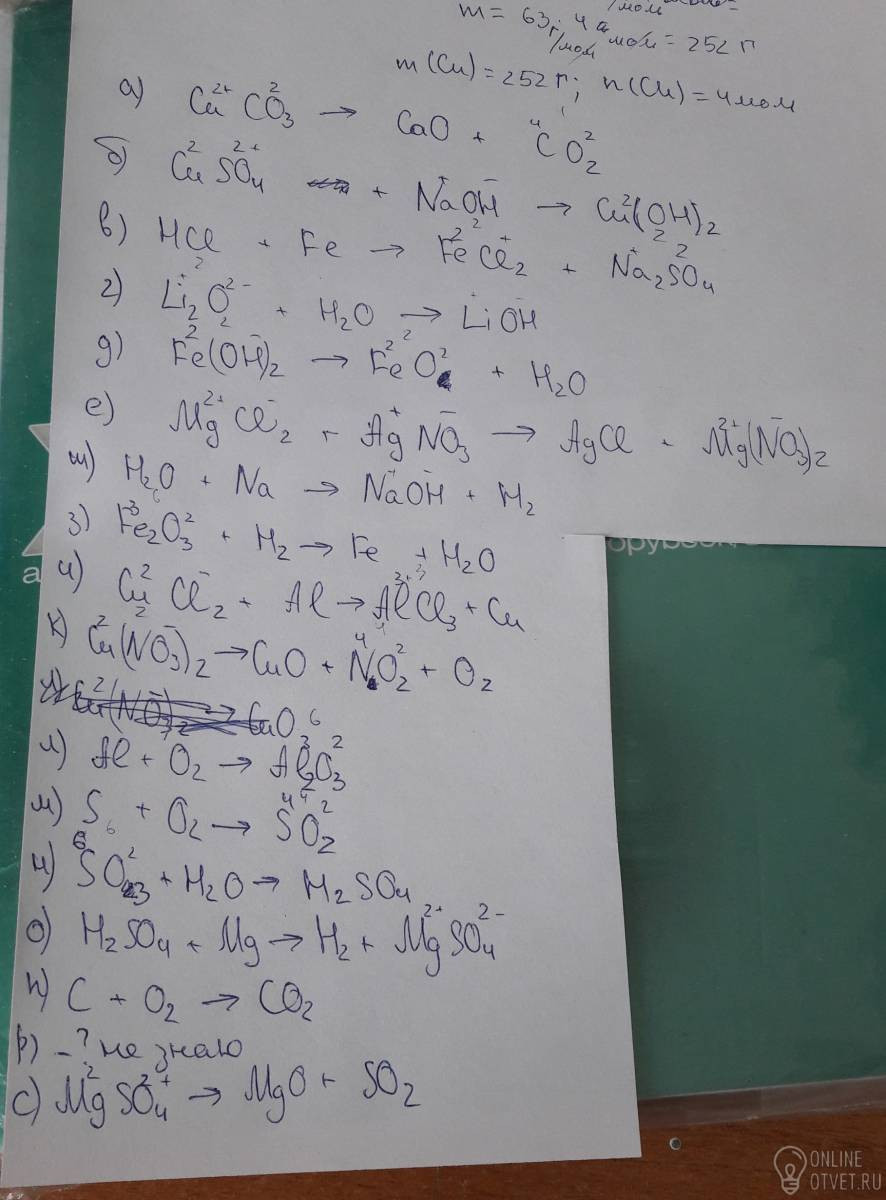 /мом
m = 63 г/мом · 4 мом = 252 г
m(Cu) = 252 г; n(Cu) = 4 мом
а) Cu²⁺CO₃² → CaO + ⁴CO₂²
б) Cu²SO₄²⁺ + Na⁺OH⁻ → Cu²(OH)₂
в) HCl + Fe → Fe²Cl₂⁺ + Na₂⁺SO₄²
г) Li₂⁺O²⁻ + H₂O → Li⁺OH⁻
д) Fe²(OH⁻)₂ → Fe²O² + H₂O
е) Mg²⁺Cl⁻₂ + Ag⁺NO₃⁻ → AgCl + Mg²⁺(NO₃⁻)₂
ж) H₂O + Na → Na⁺OH⁻ + H₂
з) Fe₂³O₃² + H₂ → Fe + H₂O
opybook
a
и) Cu²Cl⁻₂ + Al → Al³⁺Cl₃ + Cu
к) Cu²(NO₃⁻)₂ → CuO + N⁴O₂² + O₂
Cu²(NO₃⁻)₂ → CuO
л) Al + O₂ → Al₂³O₃²
м) S + O₂ → S⁴O₂²
н) S⁶O₃² + H₂O → H₂SO₄
о) H₂SO₄ + Mg → H₂ + Mg²⁺SO₄²⁻
п) C + O₂ → CO₂
р) –? не знаю
с) Mg²SO₄²⁺ → MgO + SO₂
ONLINE
OTVET.RU